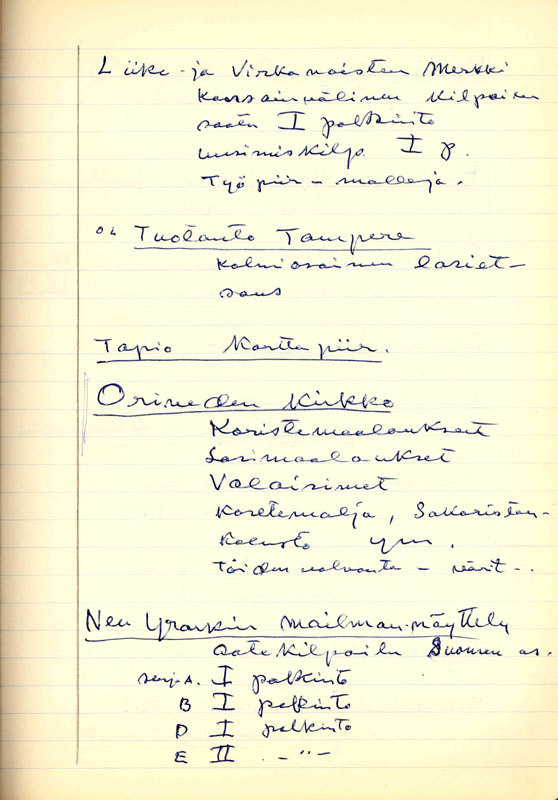 Liike- ja Virkanaisten Merkki
Kansainvälinen Kilpailu
saatu I palkinto
uusimiskilp. I p.
Työpiir - malleja.
OL Tuotanto Tampere
Kolmiosainen lasiet-
saus
Tapio Karttapiir.
Oriveden Kirkko
Koristemaalaukset
Lasimaalaukset
Valaisimet
Kastemalja, Sakaristan-
Kalusto ym.
Töiden valvonta - värit -.
New Yrorkin mailman-näyttely
aatekilpailu Suomen os.
sarja A. I palkinto
B I palkinto
D I palkinto
E II - " -